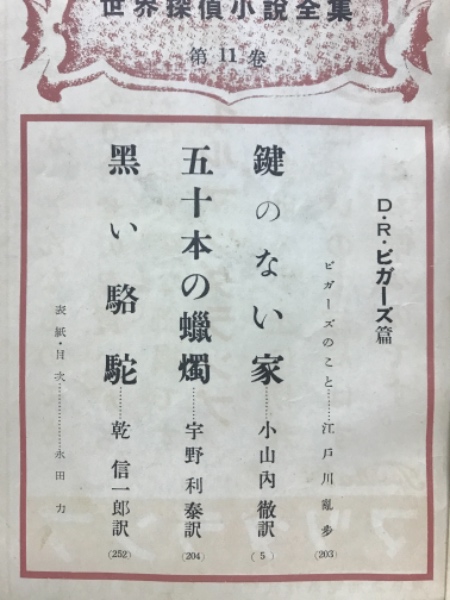 世界探偵小說全集
第11卷
D・R・ビガーズ篇
ビガーズのこと………江戸川亂步(203)
鍵のない家………小山內徹訳(5)
五十本の蠟燭………宇野利泰訳(204)
黑い駱駝………乾信一郎訳(252)
表紙・目次………………永田力